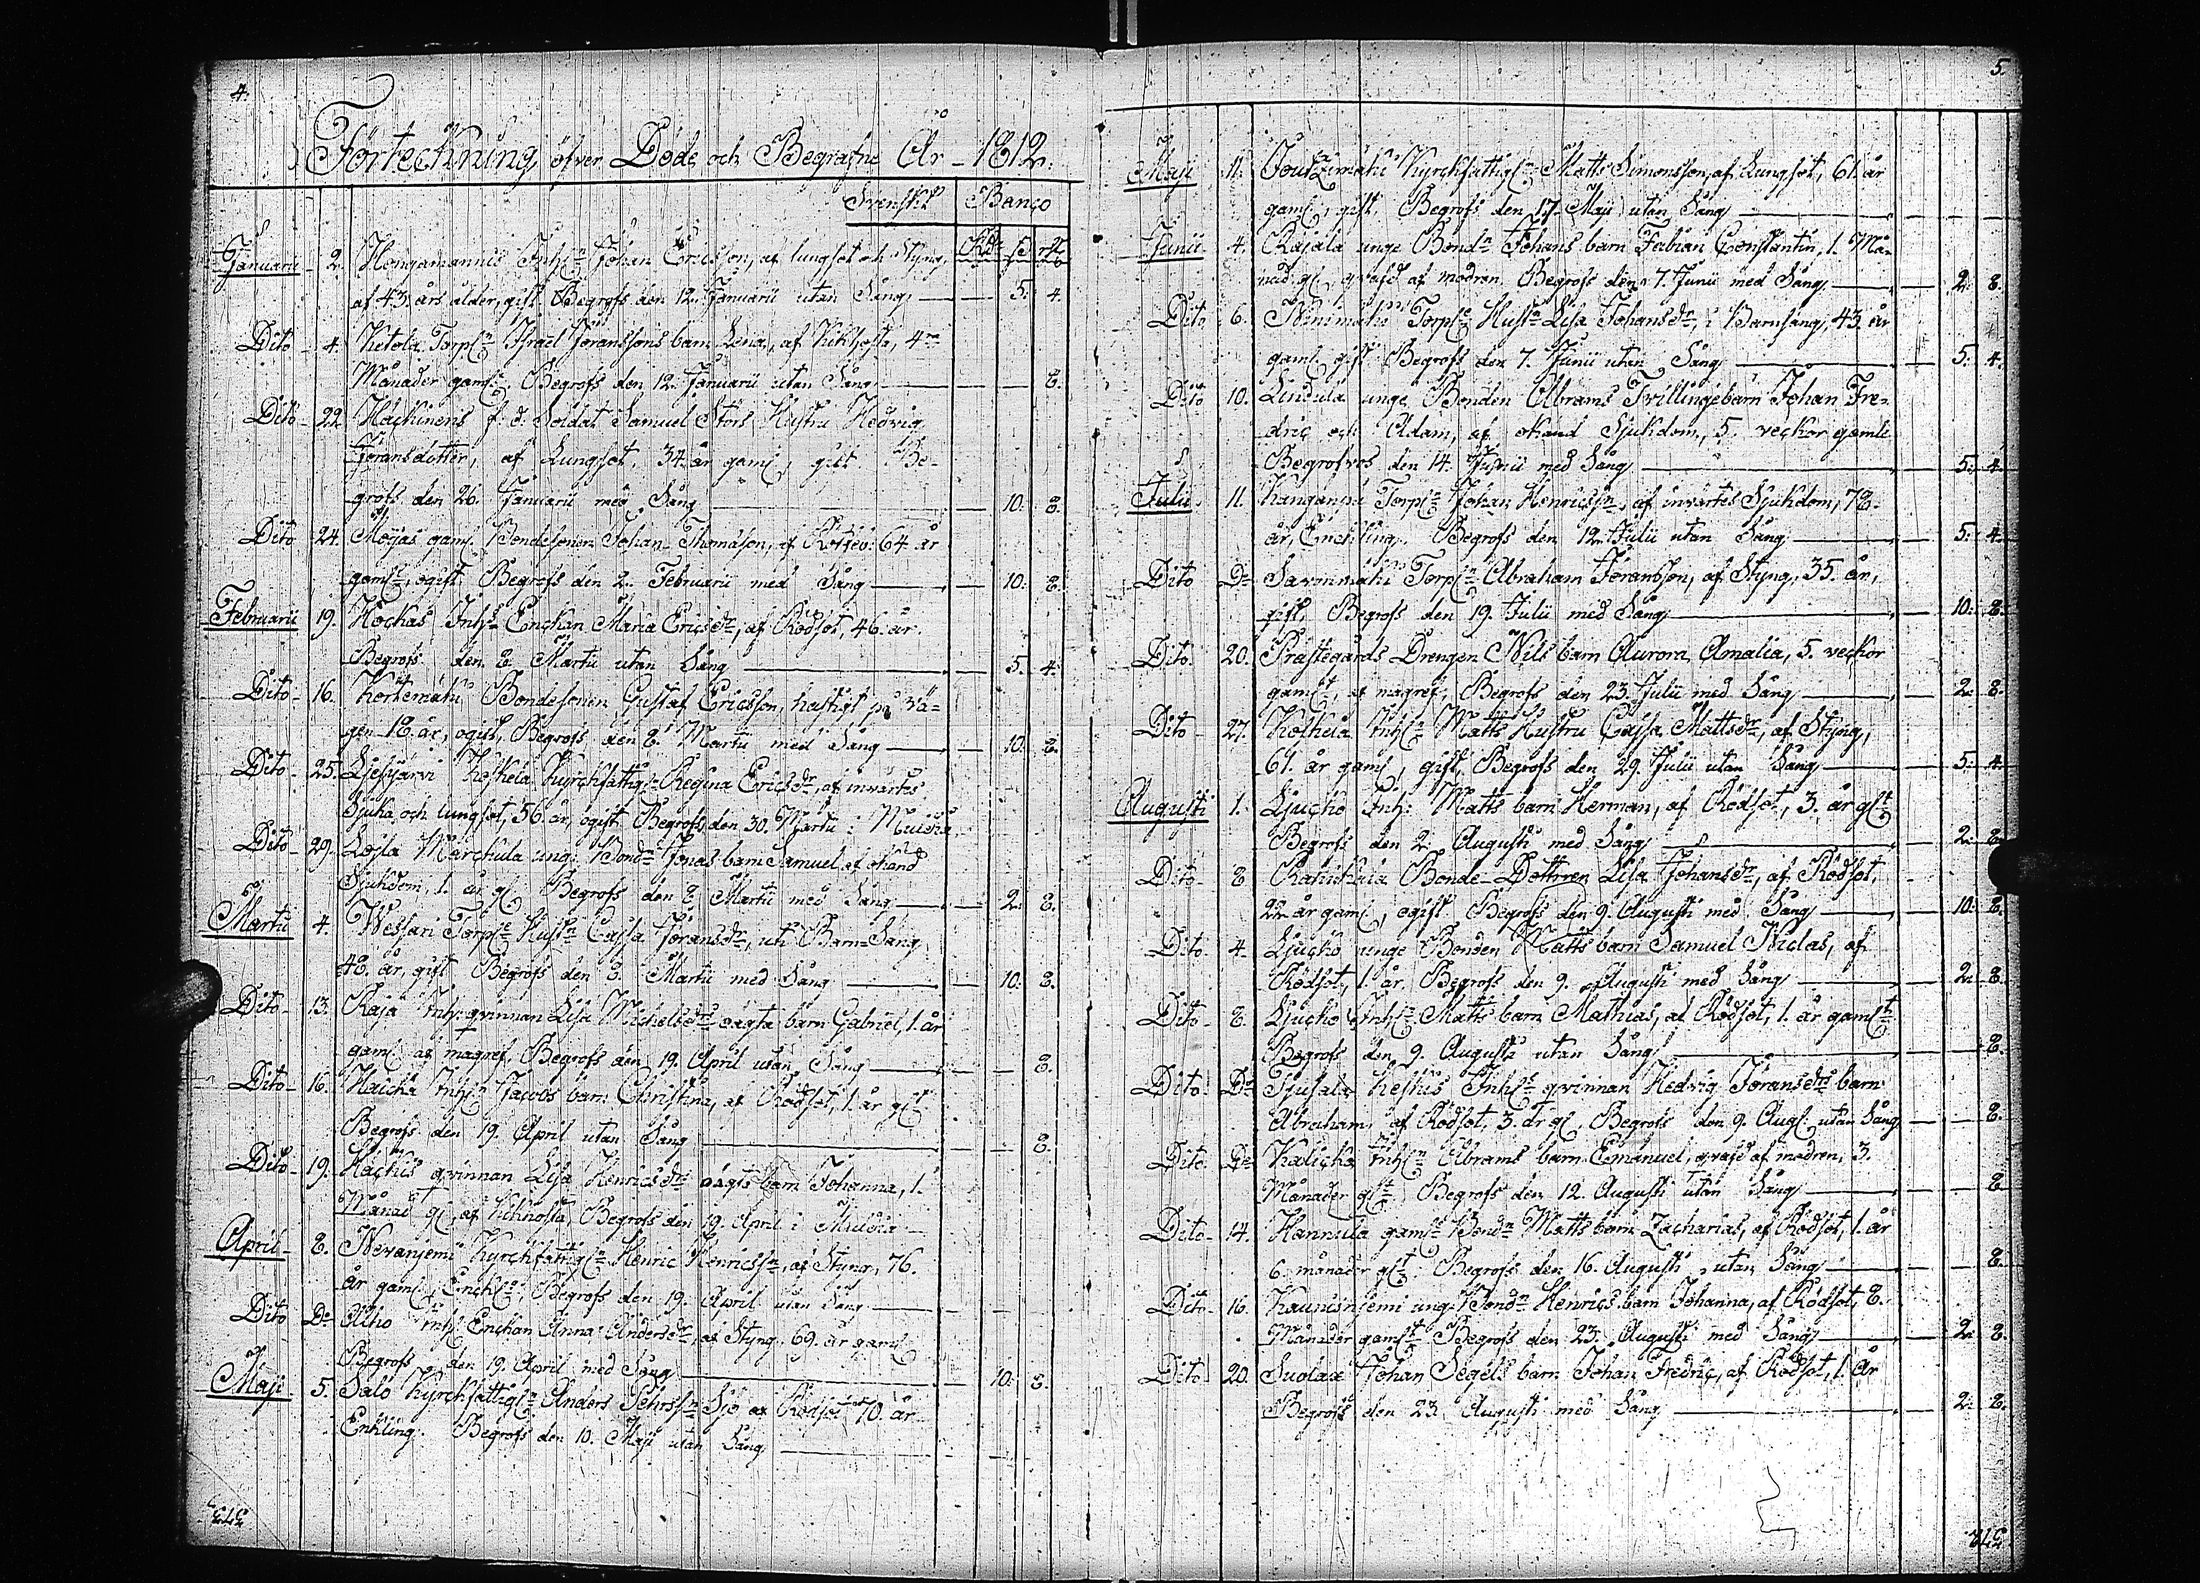 4.
Förteckning öfver Döde och Begrafne År 1812.
Svenskt Banco
Rdr ß
Januarii 2. Hongamannus Inhs Johan Ericsson, af lungsot och Styng,
af 43 års ålder, gift. Begrofs den 12. Januarii utan Sång 5. 4.
Dito 4. Ketola Torps Israel Jöranssons barn Lena, af Kikhosta, 4
Månader gaml. Begrofs den 12. Januarii utan Sång 8.
Dito 22. Häckinens f. d. Soldat Samuel Störs Hustru Hedvig
Jöransdotter, af Lungsot, 34 år gaml, gift. Be-
grofs den 26. Januarii med Sång 10. 8.
Dito 24. Möyjas gaml Bondesonen Johan Thomasson, af 64 år
gaml, ogift. Begrofs den 2. Februarii med Sång 10. 8.
Februarii 19. Höckas Inhs Enckan Maria Ericsdr, af Rödsot, 46. år.
Begrofs den 8. Martii utan Sång 5. 4.
Dito 16. Kortemäki Bondesonen Gustaf Ericsson, hastigt på vä-
gen 18. år, ogift, Begrofs den 8. Martii med Sång 10. 8.
Dito 25. Koskela Kyrckfattig Regina Ericsdr, af invärtes
Sjuka och lungsot, 56 år, ogift. Begrofs den 30. Martii i
Dito 29. Marckula ung. Bond Jonas barn Samuel af okänd
Sjukdom, 1. år gl. Begrofs den 8. Martii med Sång 2. 8.
Martii 4. Wessari Torps Hustr Cajsa Jöransdr, uti Barn-Säng
48. år, gift. Begrofs den 8. Martii med Sång 10. 8.
Dito 13. Raja Inhs qvinnan Lisa Michelsdrs oägta barn Gabriel, 1. år
gaml af magref. Begrofs den 19. April utan Sång 8.
Dito 16. Haicka Inhs Jacobs barn Christina, af Rödsot, 1. år gl
Begrofs den 19. April utan Sång 8.
Dito 19. Häckis qvinnan Lisa Henricsdrs oägta barn Johanna, 1.
Månad gl, af Kikhosta, Begrofs den 19. April i
April 8. Nevanjemi Kyrckfattigl Henric Henricssn, af Styng, 76.
år gaml, Enckl, Begrofs den 19. April utan Sång
Dito Do Alho Inhs Enckan Anna Andersdr, af Styng, 69. år gaml
Begrofs den 19. April med Sång 10. 8.
Maji 5. Salo Kyrckfattigl Anders Pehrssn Sjö af Rödsot 70. år
Enkling. Begrofs den 10. Maji utan Sång
5.
Maji 11. Kyrckfattigl Matts Simonsson, af Lungsot, 61. år
gaml, gift. Begrofs den 17. Maji utan Sång
Junii 4. Rajala unge Bondn Johans barn Fabian Constantin, 1. Må-
nad gl, qvafd af modren. Begrofs den 7. Junii med Sång 2. 8.
Dito 6. Ninimäki Torps Hustr Lisa Johansdr, i Barnsäng, 43. år
gaml gift. Begrofs den 7. Junii utan Sång 5. 4.
Dito 10. Lindula unge Bonden Abrams Tvillingebarn Johan Fre-
dric och Adam, af okänd Sjukdom, 5. veckor gamle
Begrofvos den 14. Junii med Sång 5. 4.
Julii 11. Kanganpä Torps Johan Henricssn, af invärtes Sjukdom, 78.
år, Enckling. Begrofs den 12. Julii utan Sång 5. 4.
Dito Do Savinmäki Torps Abraham Jöransson, af Styng, 35. år,
gift, Begrofs den 19. Julii med Sång 10. 8.
Dito 20. Prästegårds Drengen Nils barn Aurora Amalia, 5. veckor
gaml, af magref, Begrofs den 23. Julii med Sång 2. 8.
Dito 27. Kolkela Inhs Matts Hustru Cajsa Mattsdr, af Styng,
61. år gaml, gift, Begrofs den 29. Julii utan Sång 5. 4.
Augusti 1. Ljucko Inh: Matts barn Herman, af Rödsot, 3. år gl
Begrofs den 2. Augusti med Sång 2. 8.
Dito 8. Bonde-Dottren Lisa Johansdr, af Rödsot,
22 år gaml, ogift. Begrofs den 9. Augusti med Sång 10. 8.
Dito 4. Ljucko unge Bonden Matts barn Samuel Niclas, af
Rödsot, 1. år. Begrofs den 9. Augusti med Sång 2. 8.
Dito 8. Ljucko Inhs Matts barn Mathias, af Rödsot, 1. år gaml
Begrofs den 9. Augusti utan Sång 8.
Dito Do Inhs qvinnan Hedvig Jöransdrs barn
Abraham af Rödsot, 3. år gl, Begrofs den 9. Aug utan Sång 8.
Dito Do Kalicko Inhs Abrams barn Emanuel, qvafd af modren, 3.
Månader gl. Begrofs den 12. Augusti utan Sång 8.
Dito 14. Hannula gaml Bondn Matts barn Zacharias, af Rödsot, 1. år
6. månader gl. Begrofs den 16. Augusti utan Sång 8.
Dito 16. Kaunisniemi ung. Bondn Henrics barn Johanna, af Rödsot, 8.
Månader gaml. Begrofs den 23. Augusti med Sång 2. 8.
Dito 20. Suolax Johan Segels barn Johan Fredric, af Rödsot, 1. år
Begrofs den 23. Augusti med Sång 2. 8.